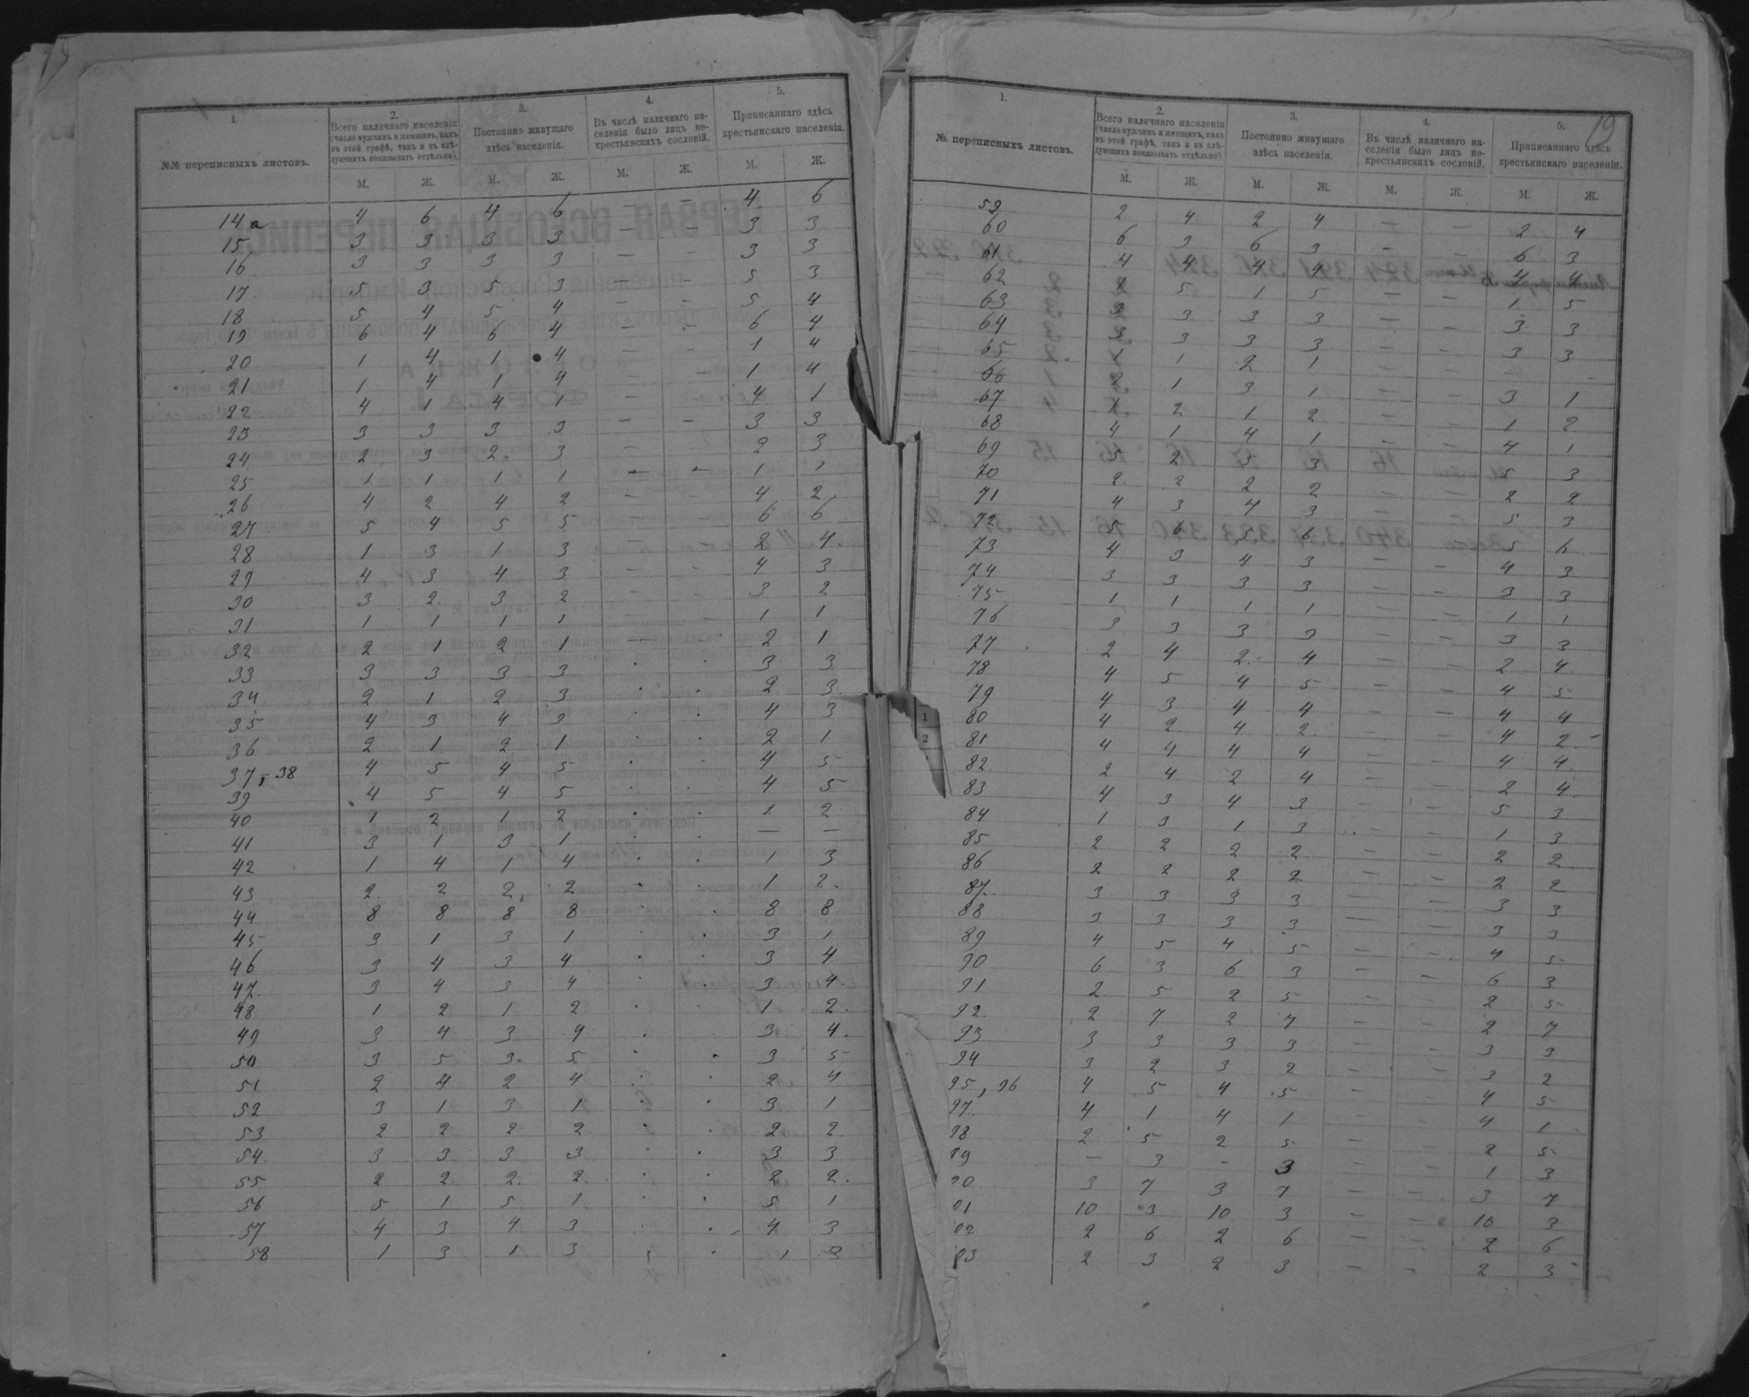 1. 2. 3. 4. 5.
№№ переписныхъ листовъ. Всего наличнаго населенія (число мужчинъ и женщинъ, какъ въ этой графѣ, такъ и въ слѣдующихъ показывать отдѣльно). Постоянно живущаго здѣсь населенія. Въ числѣ наличнаго населенія было лицъ не-крестьянскихъ сословій. Приписаннаго здѣсь крестьянскаго населенія.
М. Ж. М. Ж. М. Ж. М. Ж.
14а 4 6 4 6 — — 4 6
15 3 3 3 3 — — 3 3
16 3 3 3 3 — — 3 3
17 5 3 5 3 — — 5 3
18 5 4 5 4 — — 5 4
19 6 4 6 4 — — 6 4
20 1 4 1 4 — — 1 4
21 1 4 1 4 — — 1 4
22 4 1 4 1 — — 4 1
23 3 3 3 3 — — 3 3
24 2 3 2 3 — — 2 3
25 1 1 1 1 — — 1 1
26 4 2 4 2 — — 4 2
27 5 4 5 5 — — 6 6
28 1 3 1 3 — — 2 4
29 4 3 4 3 — — 4 3
30 3 2 3 2 — — 3 2
31 1 1 1 1 — — 1 1
32 2 1 2 1 — — 2 1
33 3 3 3 3 · · 3 3
34 2 1 2 3 · · 2 3
35 4 3 4 3 · · 4 3
36 2 1 2 1 · · 2 1
37, 38 4 5 4 5 · · 4 5
39 4 5 4 5 · · 4 5
40 1 2 1 2 · · 1 2
41 3 1 3 1 · · — —
42 1 4 1 4 · · 1 3
43 2 2 2 2 · · 1 2
44 8 8 8 8 · · 8 8
45 3 1 3 1 · · 3 1
46 3 4 3 4 · · 3 4
47 3 4 3 4 · · 3 4
48 1 2 1 2 · · 1 2
49 3 4 3 4 · · 3 4
50 3 5 3 5 · · 3 5
51 2 4 2 4 · · 2 4
52 3 1 3 1 · · 3 1
53 2 2 2 2 · · 2 2
54 3 3 3 3 · · 3 3
55 2 2 2 2 · · 2 2
56 5 1 5 1 · · 5 1
57 4 3 4 3 · · 4 3
58 1 3 1 3 · · 1 3
19
1. 2. 3. 4. 5.
№ переписныхъ листовъ. Всего наличнаго населенія (число мужчинъ и женщинъ, какъ въ этой графѣ, такъ и въ слѣдующихъ показывать отдѣльно). Постоянно живущаго здѣсь населенія. Въ числѣ наличнаго населенія было лицъ не-крестьянскихъ сословій. Приписаннаго здѣсь крестьянскаго населенія.
М. Ж. М. Ж. М. Ж. М. Ж.
59 2 4 2 4 — — 2 4
60 6 3 6 3 — — 6 3
61 4 4 4 4 — — 4 4
62 5 1 5 — — 1 5
63 3 3 3 — — 3 3
64 3 3 3 — — 3 3
65 1 2 1
66 1 3 1 — — 3 1
67 2 1 2 — — 1 2
68 4 1 4 1 — — 4 1
69 5 2 5 3 — — 5 3
70 2 2 2 2 — — 2 2
71 4 3 4 3 — — 5 3
72 5 6 5 6 — — 5 6
73 4 3 4 3 — — 4 3
74 3 3 3 3 — — 3 3
75 1 1 1 1 — — 1 1
76 3 3 3 3 — — 3 3
77 2 4 2 4 — — 2 4
78 4 5 4 5 — — 4 5
79 4 3 4 4 — — 4 4
1 80 4 2 4 2 — — 4 2
2 81 4 4 4 4 — — 4 4
82 2 4 2 4 — — 2 4
83 4 3 4 3 — — 5 3
84 1 3 1 3 — — 1 3
85 2 2 2 2 — — 2 2
86 2 2 2 2 — — 2 2
87 3 3 3 3 — — 3 3
88 3 3 3 3 — — 3 3
89 4 5 4 5 — — 4 5
90 6 3 6 3 — — 6 3
91 2 5 2 5 — — 2 5
92 2 7 2 7 — — 2 7
93 3 3 3 3 — — 3 3
94 3 2 3 2 — — 3 2
95, 96 4 5 4 5 — — 4 5
97 4 1 4 1 — — 4 1
98 2 5 2 5 — — 2 5
99 — 3 — 3 — — 1 3
00 3 7 3 7 — — 3 7
01 10 3 10 3 — — 10 3
02 2 6 2 6 — — 2 6
03 2 3 2 3 — — 2 3